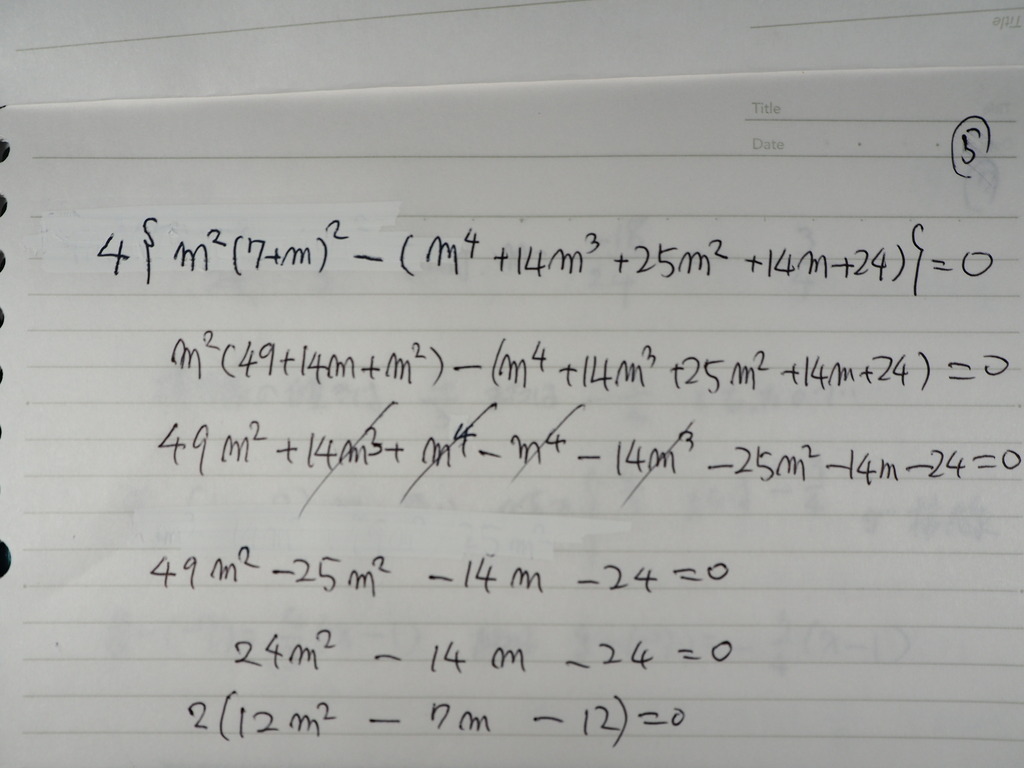 Title
Title
Date
⑤
4{m²(7+m)² - (m⁴ + 14m³ + 25m² + 14m + 24)} = 0
m²(49 + 14m + m²) - (m⁴ + 14m³ + 25m² + 14m + 24) = 0
49m² + 14m³ + m⁴ - m⁴ - 14m³ - 25m² - 14m - 24 = 0
49m² - 25m² - 14m - 24 = 0
24m² - 14m - 24 = 0
2(12m² - 7m - 12) = 0